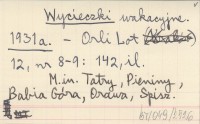 Wycieczki wakacyjne.
1931a. - Orli Lot
12, nr 8-9: 142, il.
M.in. Tatry, Pieniny,
Babia Góra, Orawa, Spisz.